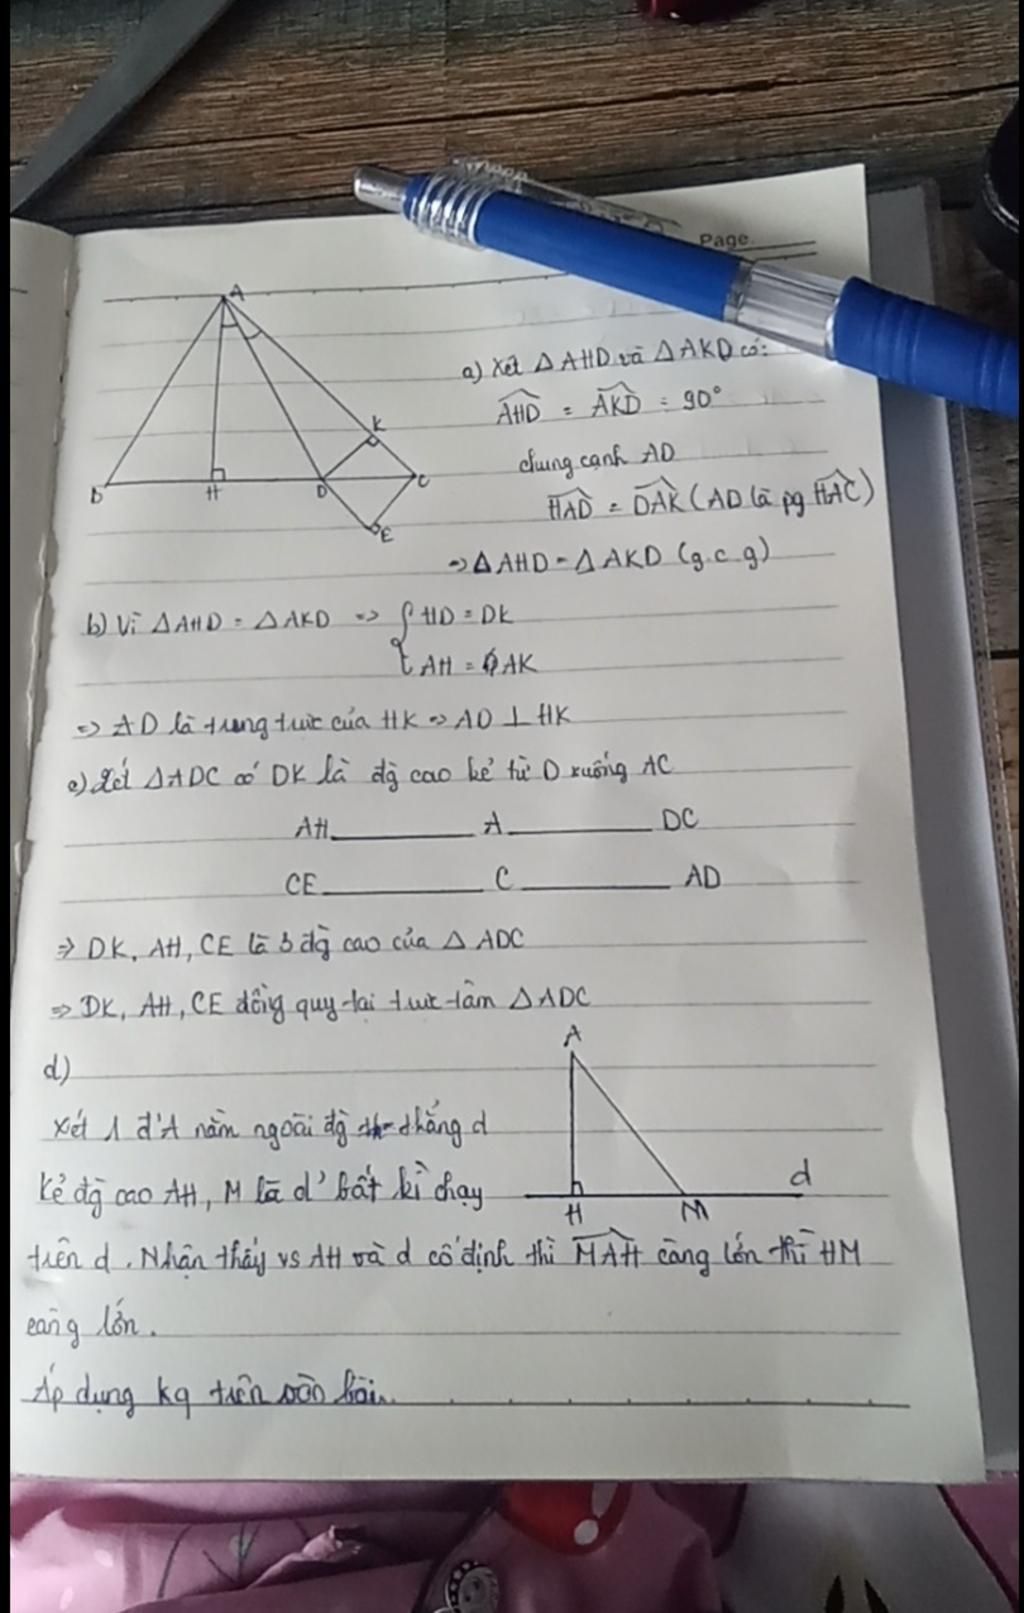 Page
A
K
B
H
D
C
E
a) Xét △ AHD và △ AKD có:
AHD = AKD = 90°
chung cạnh AD
HAD = DAK (AD là pg HAC)
=> △ AHD = △ AKD (g.c.g)
b) Vì △AHD = △AKD => { HD = DK
AH = AK
=> AD là trung trực của HK => AD ⊥ HK
c) Xét △ADC có DK là đg cao kẻ từ D xuống AC
AH ____ A ____ DC
CE ____ C ____ AD
=> DK, AH, CE là 3 đg cao của △ ADC
=> DK, AH, CE đồng quy tại trực tâm △ADC
d)
A
Xét 1 đ' A nằm ngoài đg thẳng d
Kẻ đg cao AH, M là đ' bất kì chạy
d
H
M
trên d. Nhận thấy vs AH và d cố định thì MAH càng lớn thì HM
càng lớn.
Áp dụng kq trên vào bài.